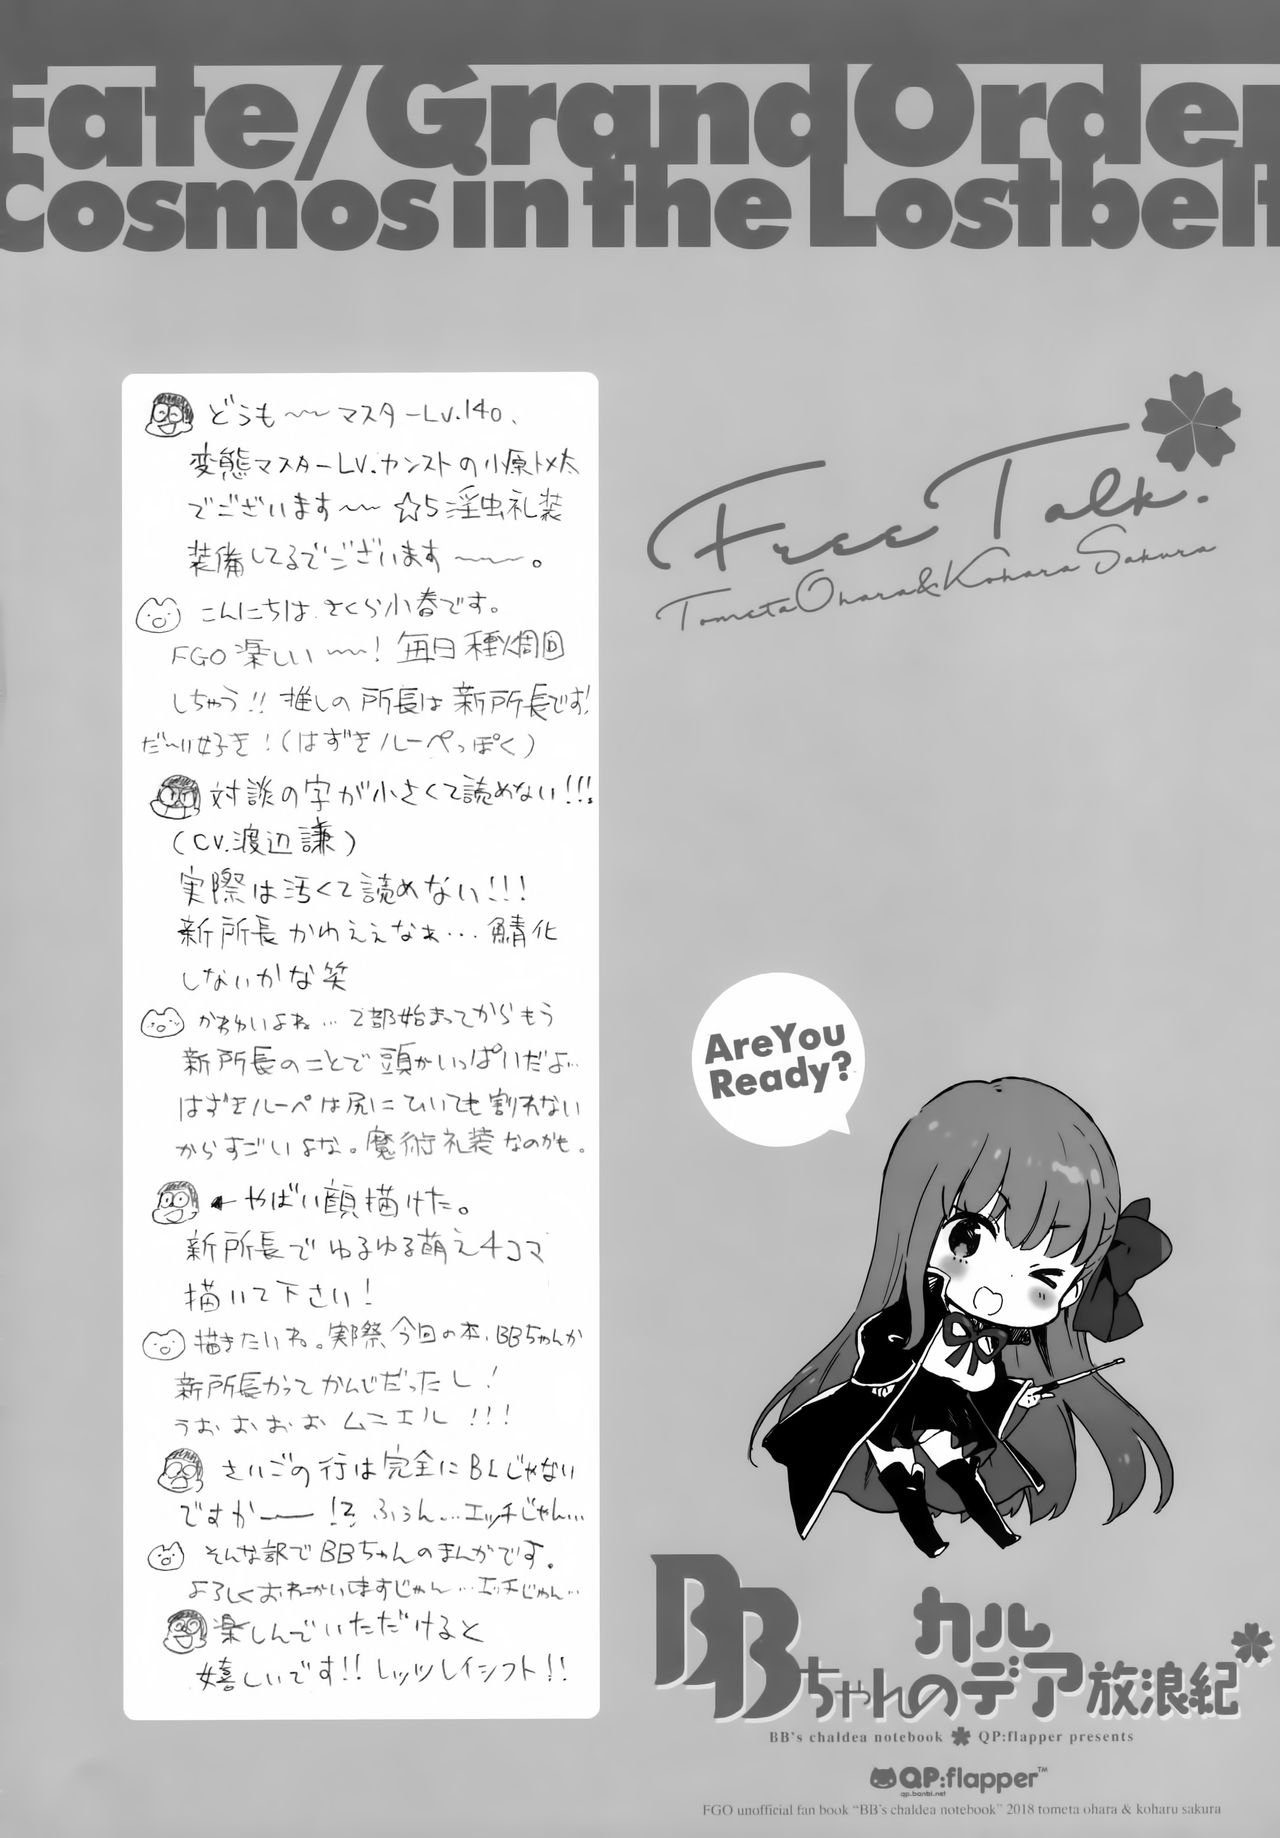 Fate/Grand Order
Cosmos in the Lostbelt
どうも〜〜マスターLv.140、
変態マスターLV.カンストの小原トメ太
でございます〜〜 ☆5淫虫礼装
装備してるでございます〜〜。
こんにちは、さくら小春です。
FGO楽しい〜〜! 毎日種火周回
しちゃう!! 推しの所長は新所長です!
だ〜い好き!(はずきルーペっぽく)
対談の字が小さくて読めない!!!
(CV.渡辺謙)
実際は汚くて読めない!!!
新所長かわええなぁ…鯖化
しないかな笑
かわゆいよね…2部始まってからもう
新所長のことで頭がいっぱいだよ…
はずきルーペは尻にひいても割れない
からすごいよな。魔術礼装なのかも。
←やばい顔描けた。
新所長でゆるゆる萌え4コマ
描いて下さい!
描きたいね。実際今回の本、BBちゃんか
新所長かってかんじだったし!
うおおおおムニエル!!!
さいごの行は完全にBLじゃない
ですかー!? ふぅん…エッチじゃん…
そんな訳でBBちゃんのまんがです。
よろしくおねがいしますじゃん…エッチじゃん…
楽しんでいただけると
嬉しいです!! レッツレイシフト!!
Free Talk.
Tometa Ohara & Koharu Sakura
Are You
Ready?
BBちゃんのカルデア放浪紀
BB's chaldea notebook QP:flapper presents
QP:flapper™
qp.banbi.net
FGO unofficial fan book "BB's chaldea notebook" 2018 tometa ohara & koharu sakura